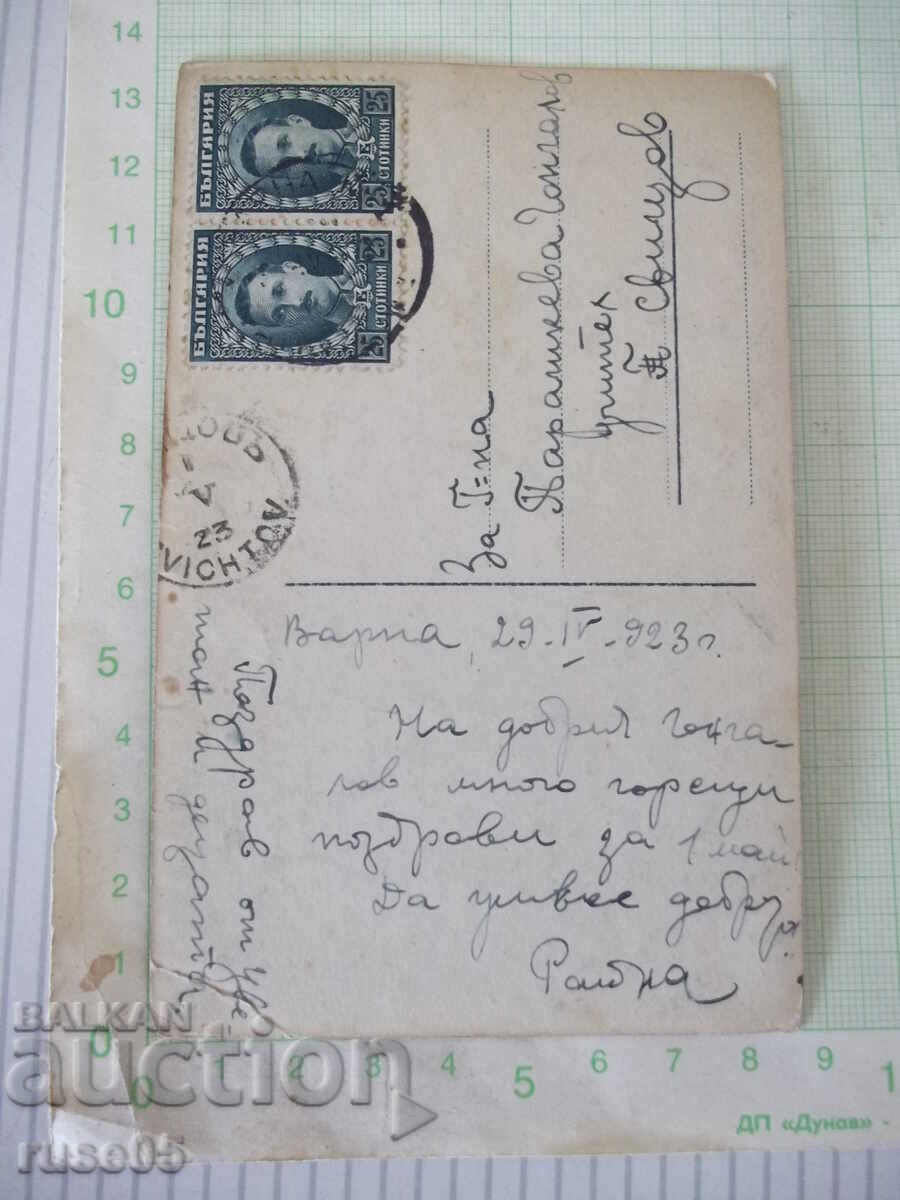 БЪЛГАРИЯ
25 СТОТИНКИ 25
БЪЛГАРИЯ
25 СТОТИНКИ 25
23
VICHTOV
За Г=на
Параскева Гонгалов
учител
гр. Свищов
Варна, 29-IV-923г.
На добрия Гонга-
лов много горещи
поздрави за 1 май
Да живее добрия
Поздрав от Цве-
тан и децата
14
13
12
11
10
9
8
7
6
5
4
3
2
1
0
0 1 2 3 4 5 6 7 8 9 1
ДП «Дунав» -
BALKAN
auction
ruse05